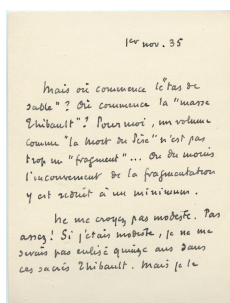 1er nov. 35
Mais où commence le "tas de
sable"? Où commence la "masse
Thibault"? Pour moi, un volume
comme "la Mort du Père" n'est pas
trop un "fragment"... Ou du moins
l'inconvénient de la fragmentation
y est réduit à un minimum.
Ne me croyez pas modeste. Pas
assez! Si j'étais modeste, je ne me
serais pas enlisé quinze ans dans
ces sacrés Thibault. Mais je le